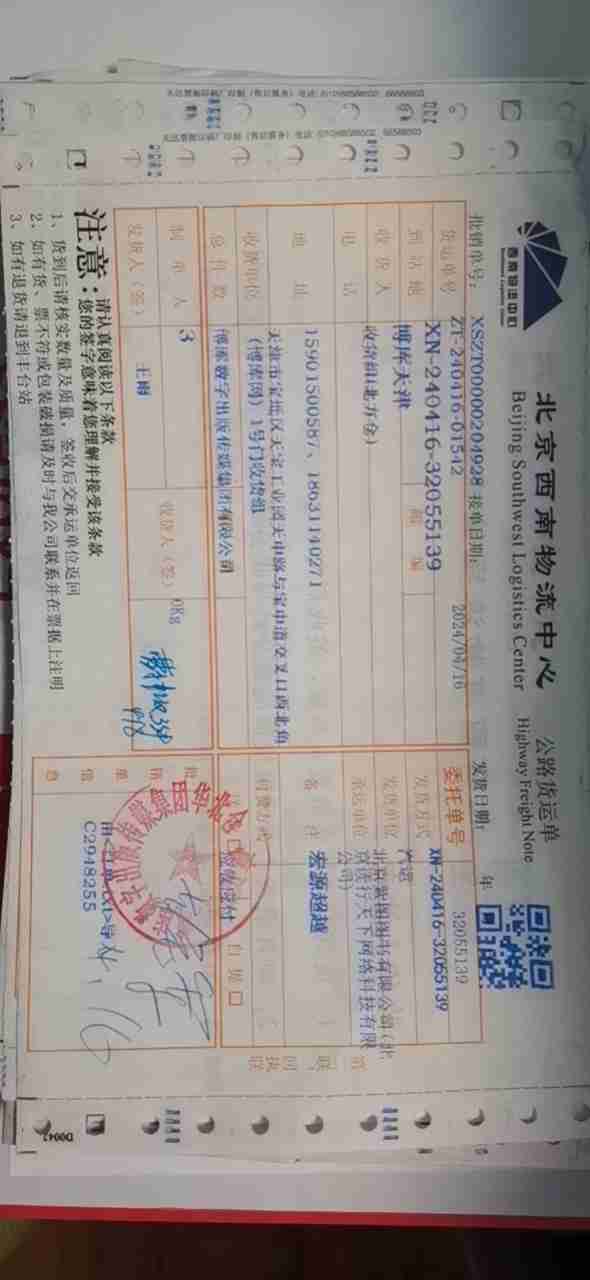 西南物流中心
北京西南物流中心 公路货运单
Beijing Southwest Logistics Center Highway Freight Note
批销单号: XSZT00000204928 接单日期: 2024/04/16 发货日期: 年
货运单号 ZT-240416-01542 委托单号 32055139
到站地 XN-240416-32055139 XN-240416-32055139
博库天津 邮编 发货方式 汽运
收货人 收货组(北方仓) 发货单位 北京紫图图书有限公司(北
京读行天下网络科技有限
公司)
承运单位
电话 15901500587、18631140271 备 注 宏源超越
地址 天津市宝坻区天宝工业园天中路与宝中道交叉口西北角
(博库网) 1号门收货组
收货单位 博库数字出版传媒集团有限公司 付费方式
自提口
总件数 3 0Kg
制单人 王雨
发货人(签) 收货人(签)
批销单信息
C2948255
注意:
请认真阅读以下条款
您的签字意味着您理解并接受该条款
1、货到后请核实数量及质量,签收后交承运单位返回
2、如有货、票不符或包装破损请及时与我公司联系并在票据上注明
3、如有退货请退到丰台站
第 联 回执联